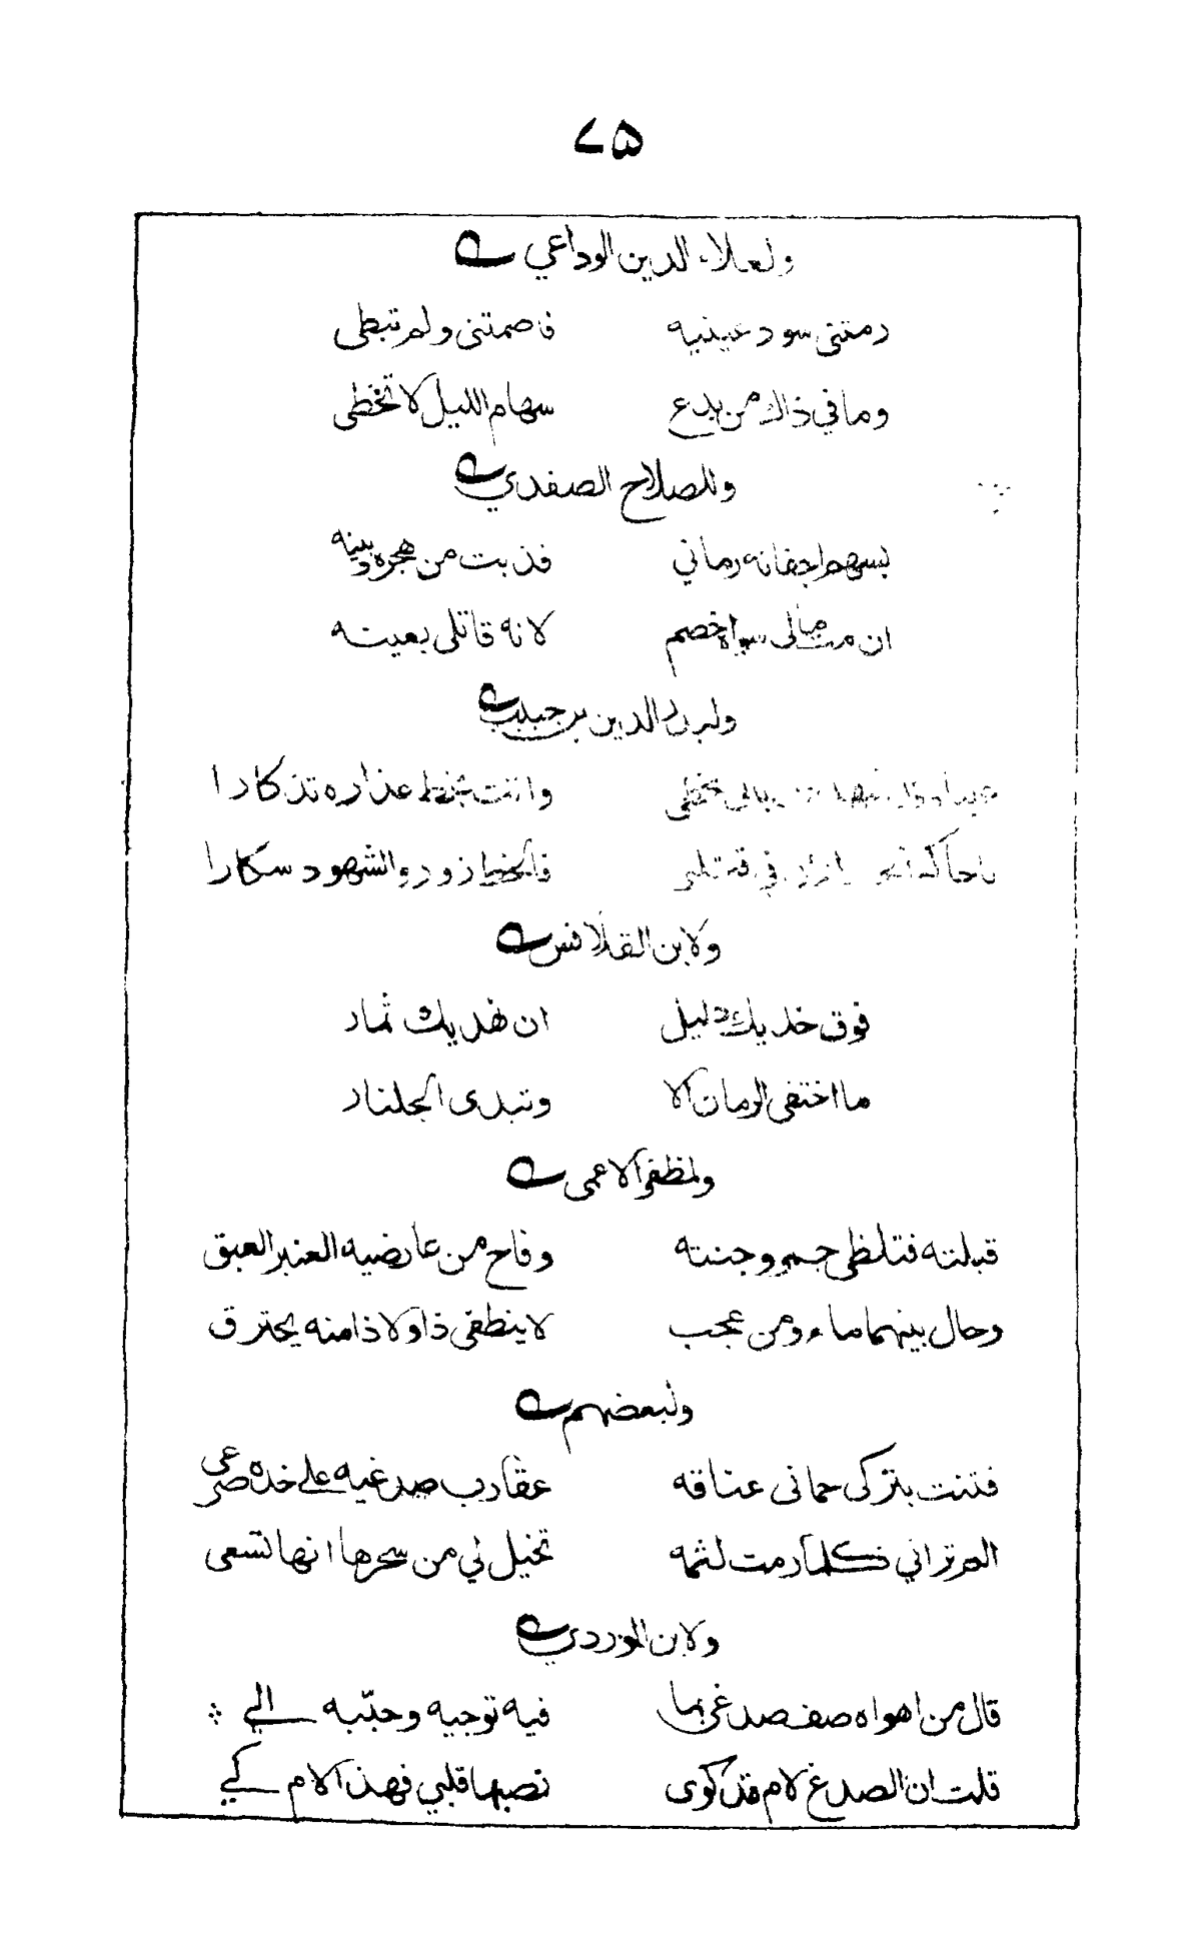 ٧٥
ولعلاء الدين الوداعي
رمتني سود عينيه فاصمتنى ولم تبطى
وما في ذاك من بدع سهام الليل لا تخطى
وللصلاح الصفدي
بسهم اجفانه رماني فذبت من هجره وبينه
ان مت مالى سواه خصم لانه قاتلى بعينه
ولبدر الدين بن حبيب
وانت بخط عذاره تذكارا
في قتلى فالخط زور والشهود سكارا
ولابن القلاقس
فوق خديك دليل ان نهديك ثمار
ما اختفى الرمان الا وتبدى الجلنار
ولمظفر الاعمى
قبلته فتلظى جمر وجنته وفاح من عارضيه العنبر العبق
وحال بينهما ماء ومن عجب لا ينطفى ذا ولا ذا منه يحترق
ولبعضهم
فتنت بتركى حمانى عناقه عقارب صدغيه على خده صرعى
الم ترانى كلما رمت لثمه تخيل لي من سحرها انها تسعى
ولابن الوردي
قال من اهواه صف صدغى بما فيه توجيه وحبّبه الي
قلت ان الصدغ لام قد كوى نصبها قلبي فهذا لام كي